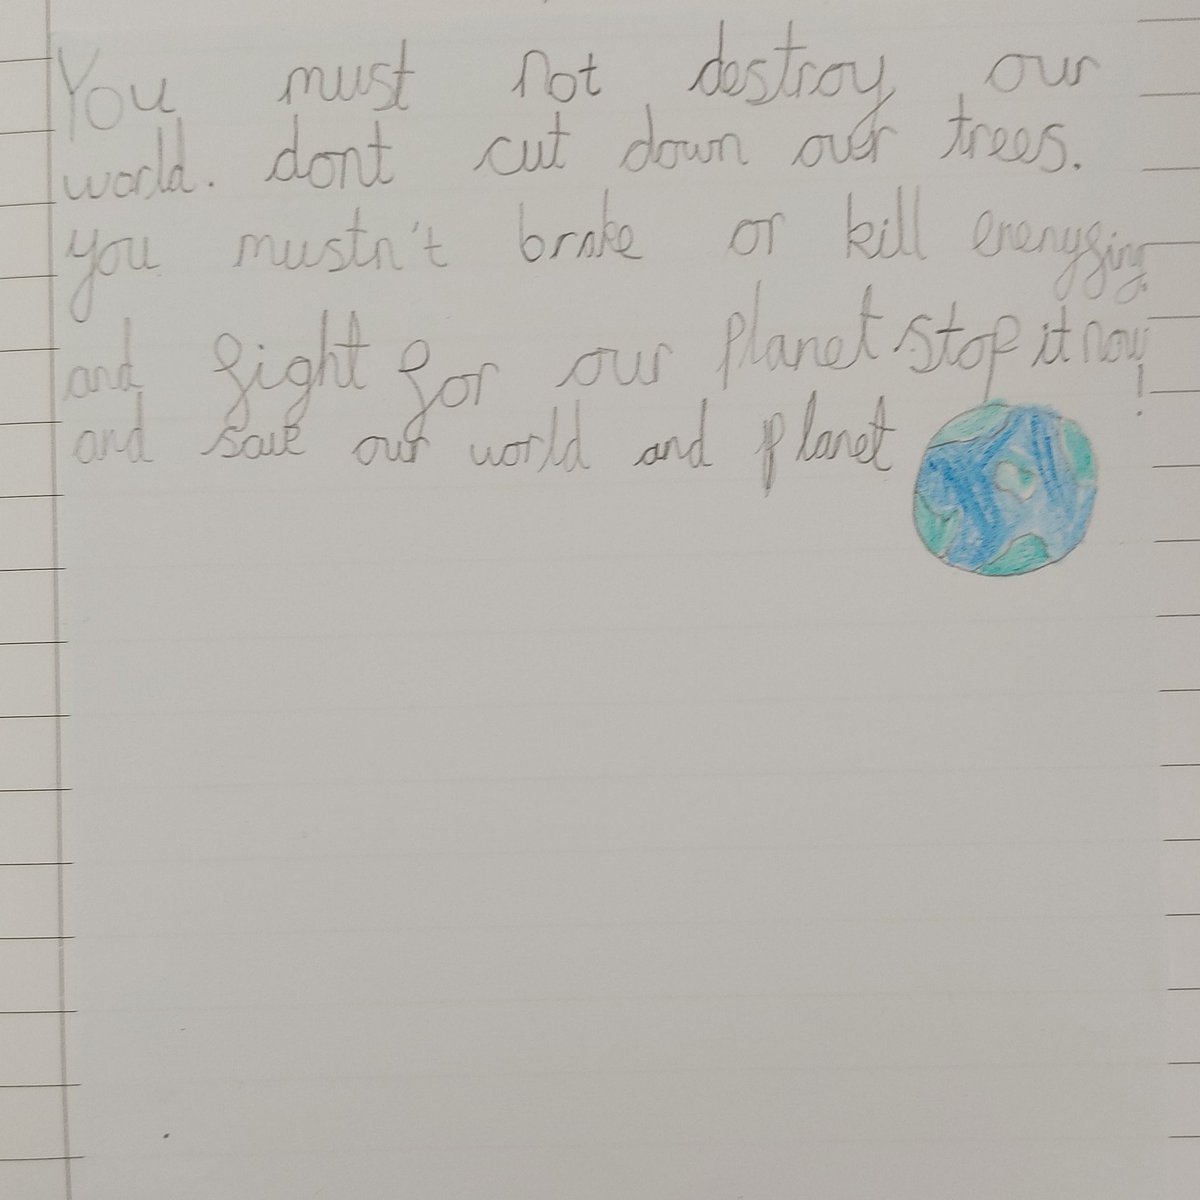 You must not destroy our
world. dont cut down our trees.
you mustn't brake or kill
and fight for our planet stop it now!
and save our world and planet